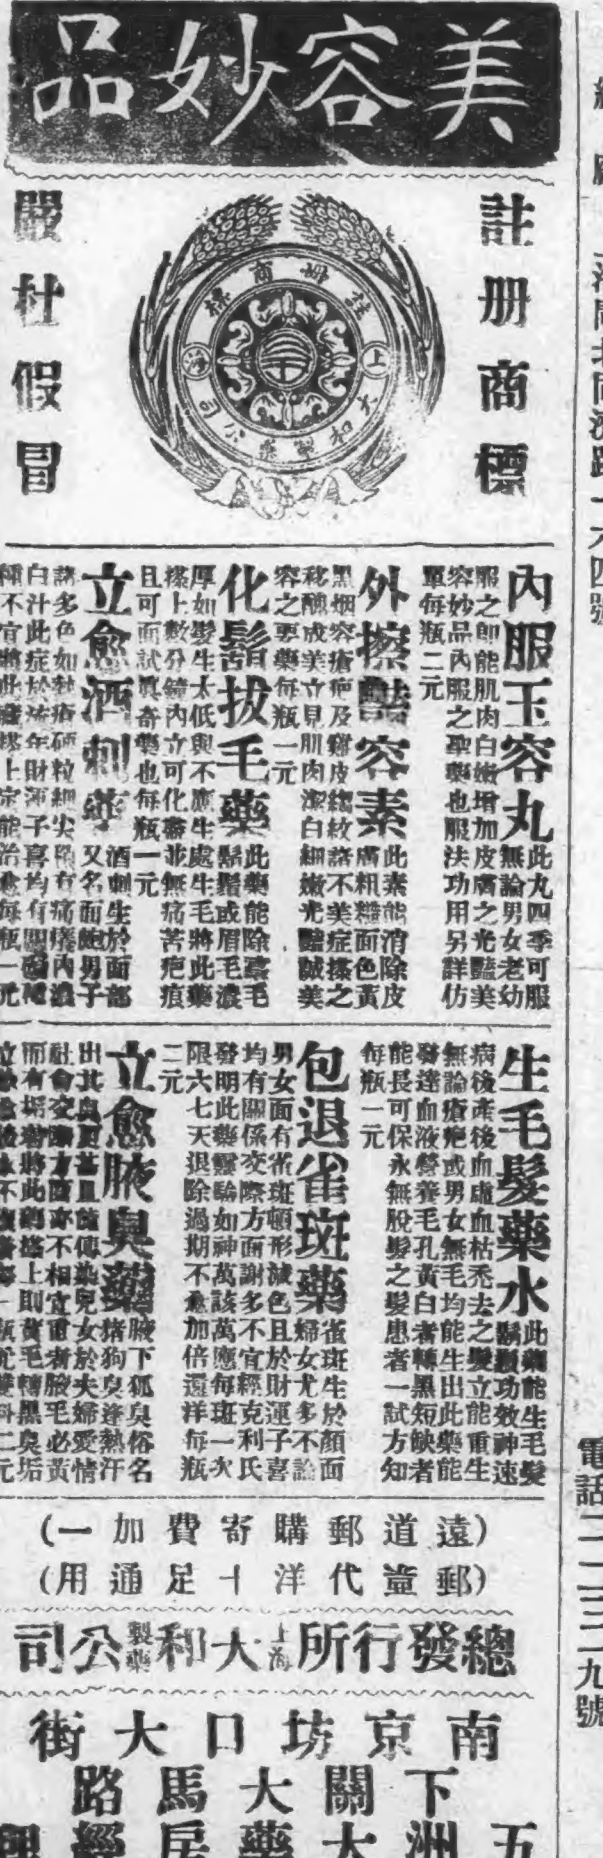 美容妙品
註册商標
嚴杜假冒
註册商標
上海
大和製藥公司
內服玉容丸
此丸四季可服
無論男女老幼
服之即能肌肉白嫩增加皮膚之光豔美
容妙品內服之聖藥也服法功用另詳仿
單每瓶二元
外擦豔容素
此素能消除皮
膚粗糙面色黃
黑烟容瘡疤及雞皮縐紋諸不美症搽之
移醜成美立見肌肉潔白細嫩光豔誠美
容之要藥每瓶一元
化鬍拔毛藥
此藥能除露毛
鬍鬚或眉毛濃
厚如髮生太低與不應生處生毛將此藥
搽上數分鐘內立可化盡並無痛苦疤痕
且可面試眞奇藥也每瓶一元
立愈酒刺藥
酒刺生於面部
又名面皰男子
諸多色如熱瘡硬粒細尖陷有痛癢內濃
白汁此症於流年財運子喜均有關礙
種不宜將此藥搽上定能治愈每瓶一元
生毛髮藥水
此藥能生毛髮
鬍鬚功效神速
病後產後血虛血枯禿去之髮立能重生
無論瘡疤或男女無毛均能生出此藥能
發達血液營養毛孔黃白者轉黑短缺者
能長可保永無脫髮之髮患者一試方知
每瓶一元
包退雀斑藥
雀斑生於顏面
婦女尤多不論
男女面有雀斑頓形減色且於財運子喜
均有關係交際方面謝多不宜經克利氏
發明此藥靈驗如神萬該萬應每斑一次
限六七天退除過期不愈加倍還洋每瓶
二元
立愈腋臭藥
腋下狐臭俗名
豬狗臭逢熱汗
出其臭更甚且能傳染兒女於夫婦愛情
社會交際方面亦不相宜重者腋毛必黃
而有垢將此藥搽上則黃毛轉黑臭垢
二元
(遠道郵購寄費加一)
(郵票代洋十足通用)
總發行所上海大和製藥公司
南京坊口大街
下關大馬路
五洲大藥房經
電話二二三二九號